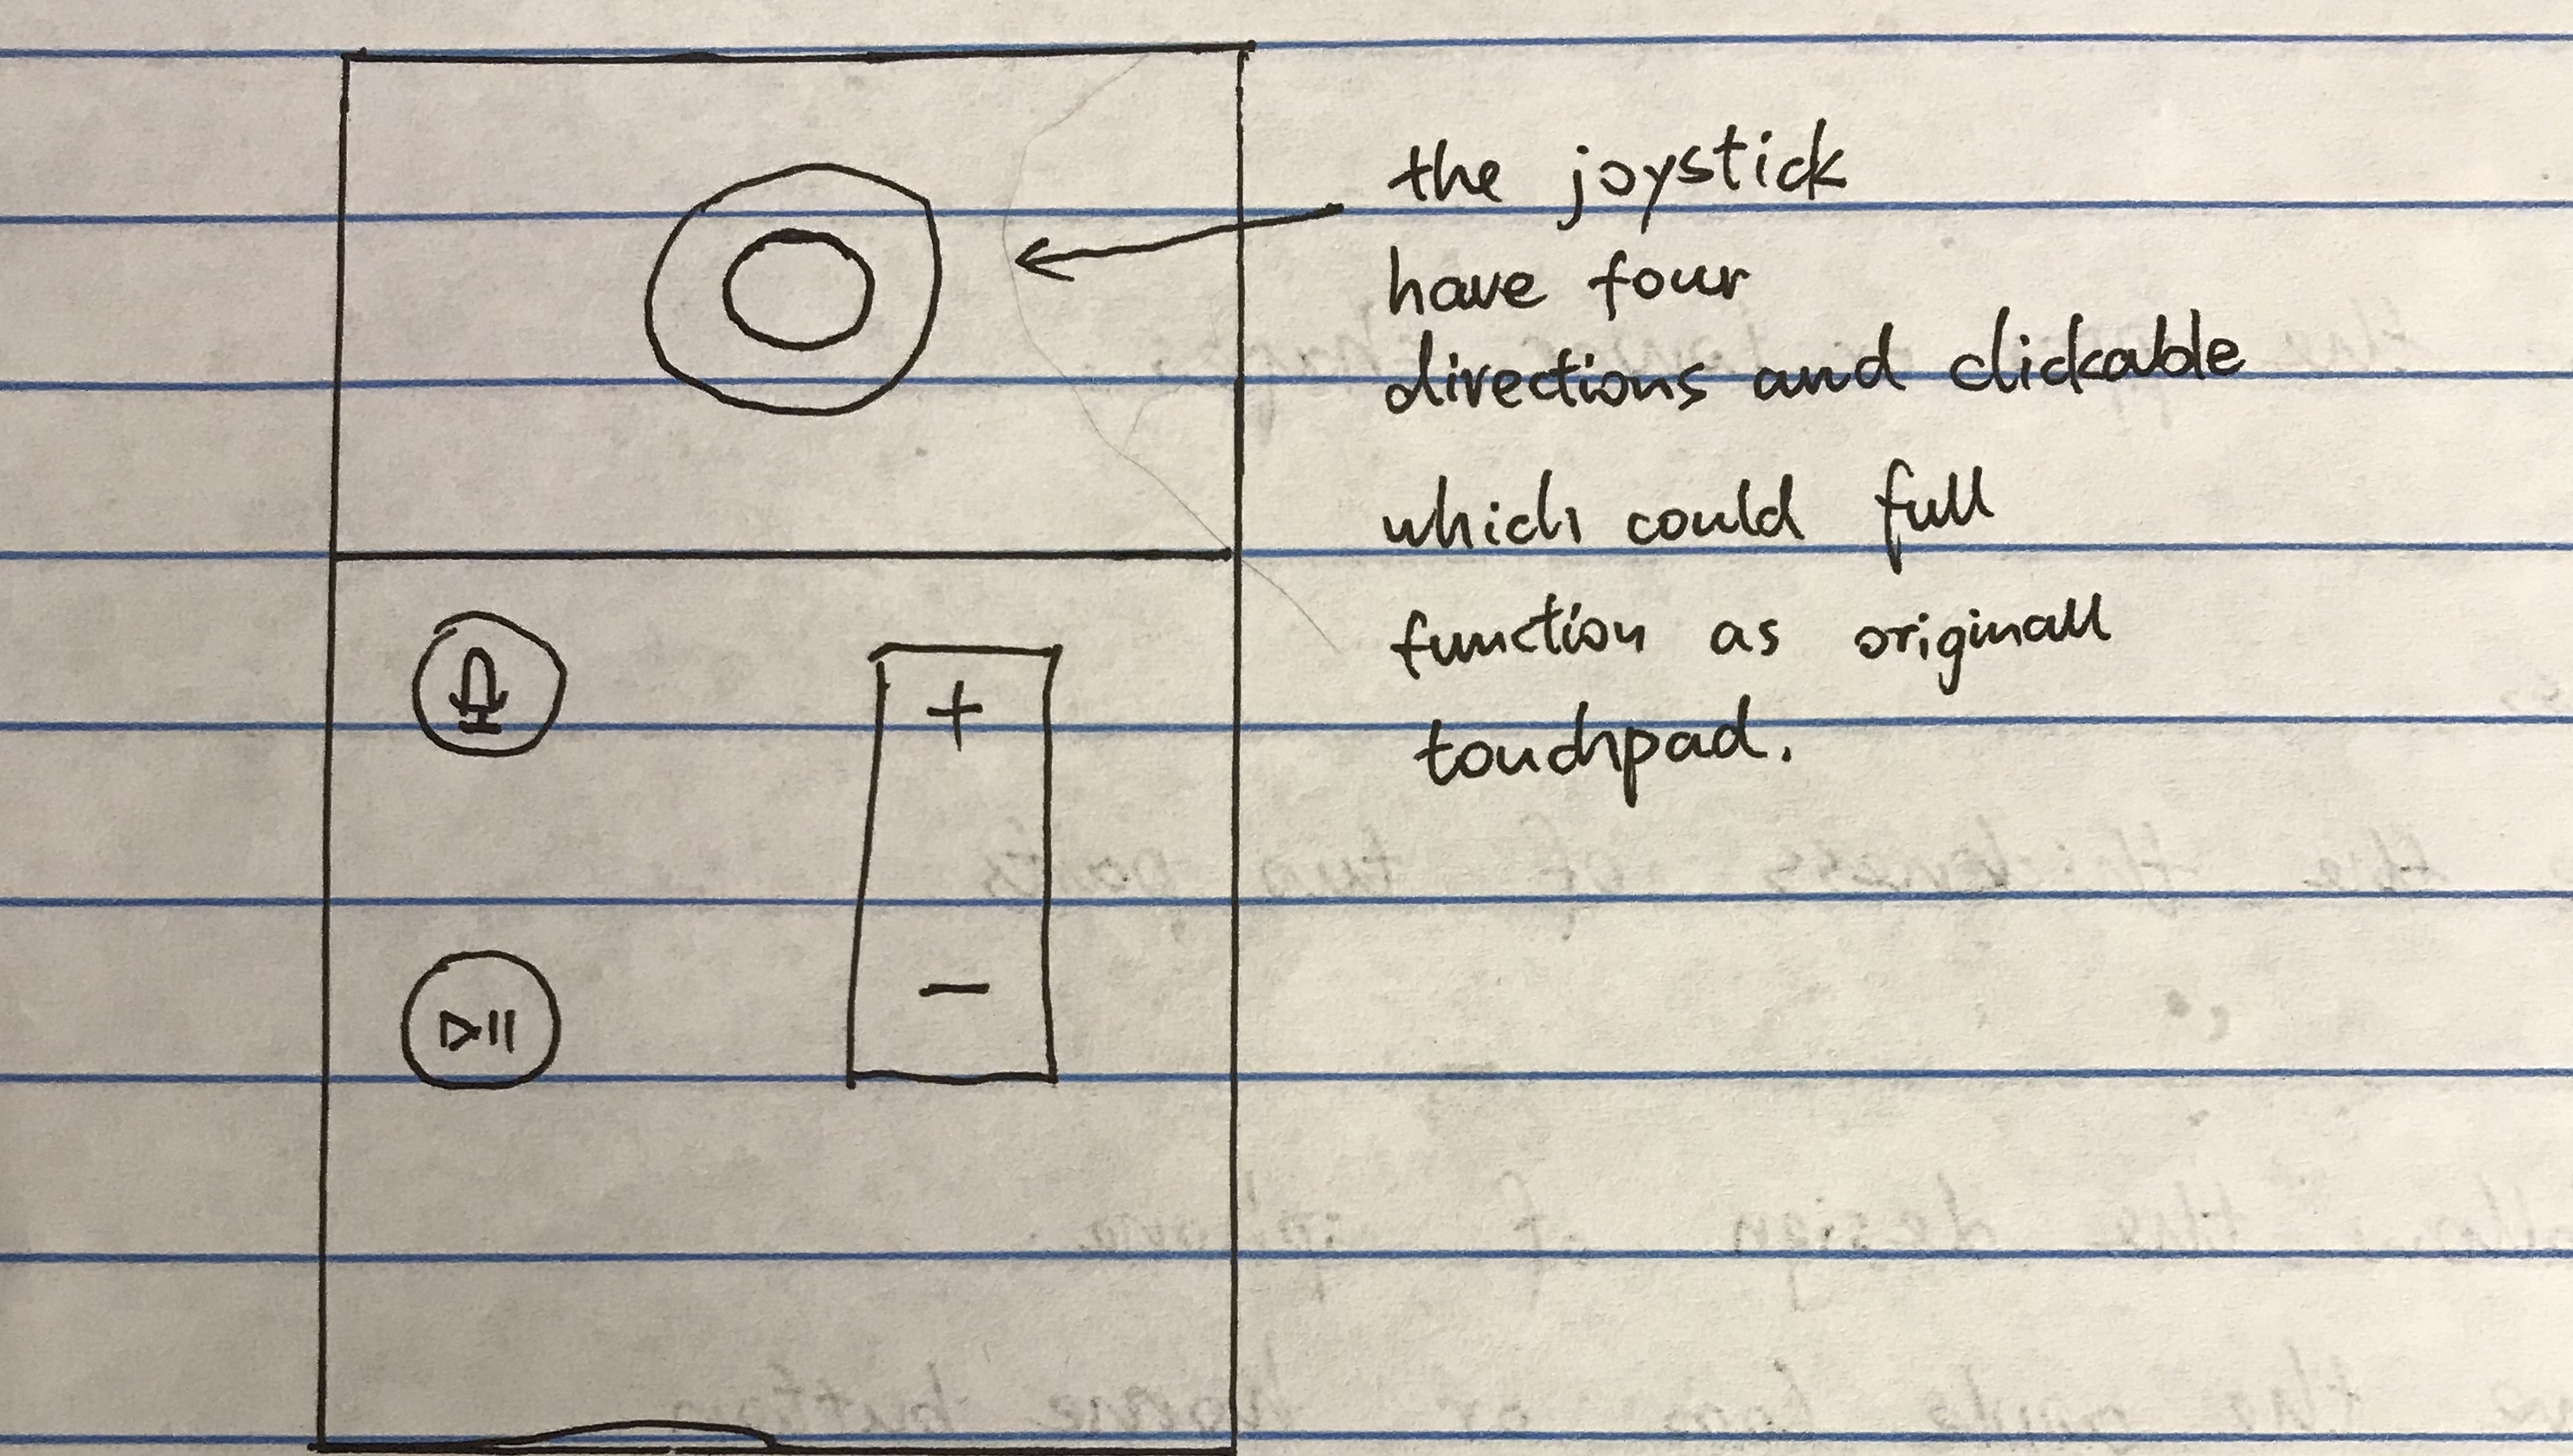 the joystick
have four
directions and clickable
which could full
function as originall
touchpad.
+
−